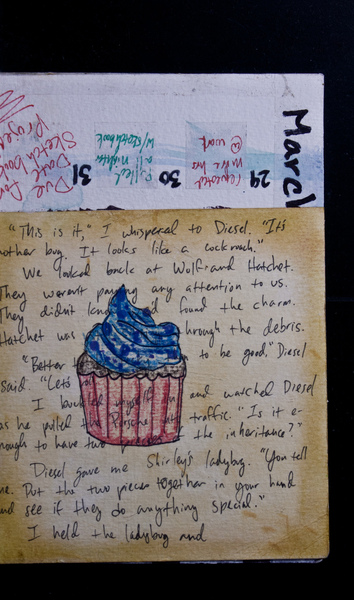 March
29
requested
more hrs
@ work
30
Pulled
all nighter
w/sketchbook
31
Due for
Sketchbook
Project
"This is it," I whispered to Diesel. "It's
nother bug. It looks like a cockroach."
We looked back at Wolf and Hatchet.
They weren't paying any attention to us.
They didn't found the charm.
Hatchet was through the debris.
"Better to be good," Diesel
said. "Let's
I buckled myself in and watched Diesel
as he pulled the Porsche traffic. "Is it e-
nough to have two pieces the inheritance?"
Diesel gave me Shirley's ladybug. "You tell
me. Put the two pieces together in your hand
and see if they do anything special."
I held the ladybug and